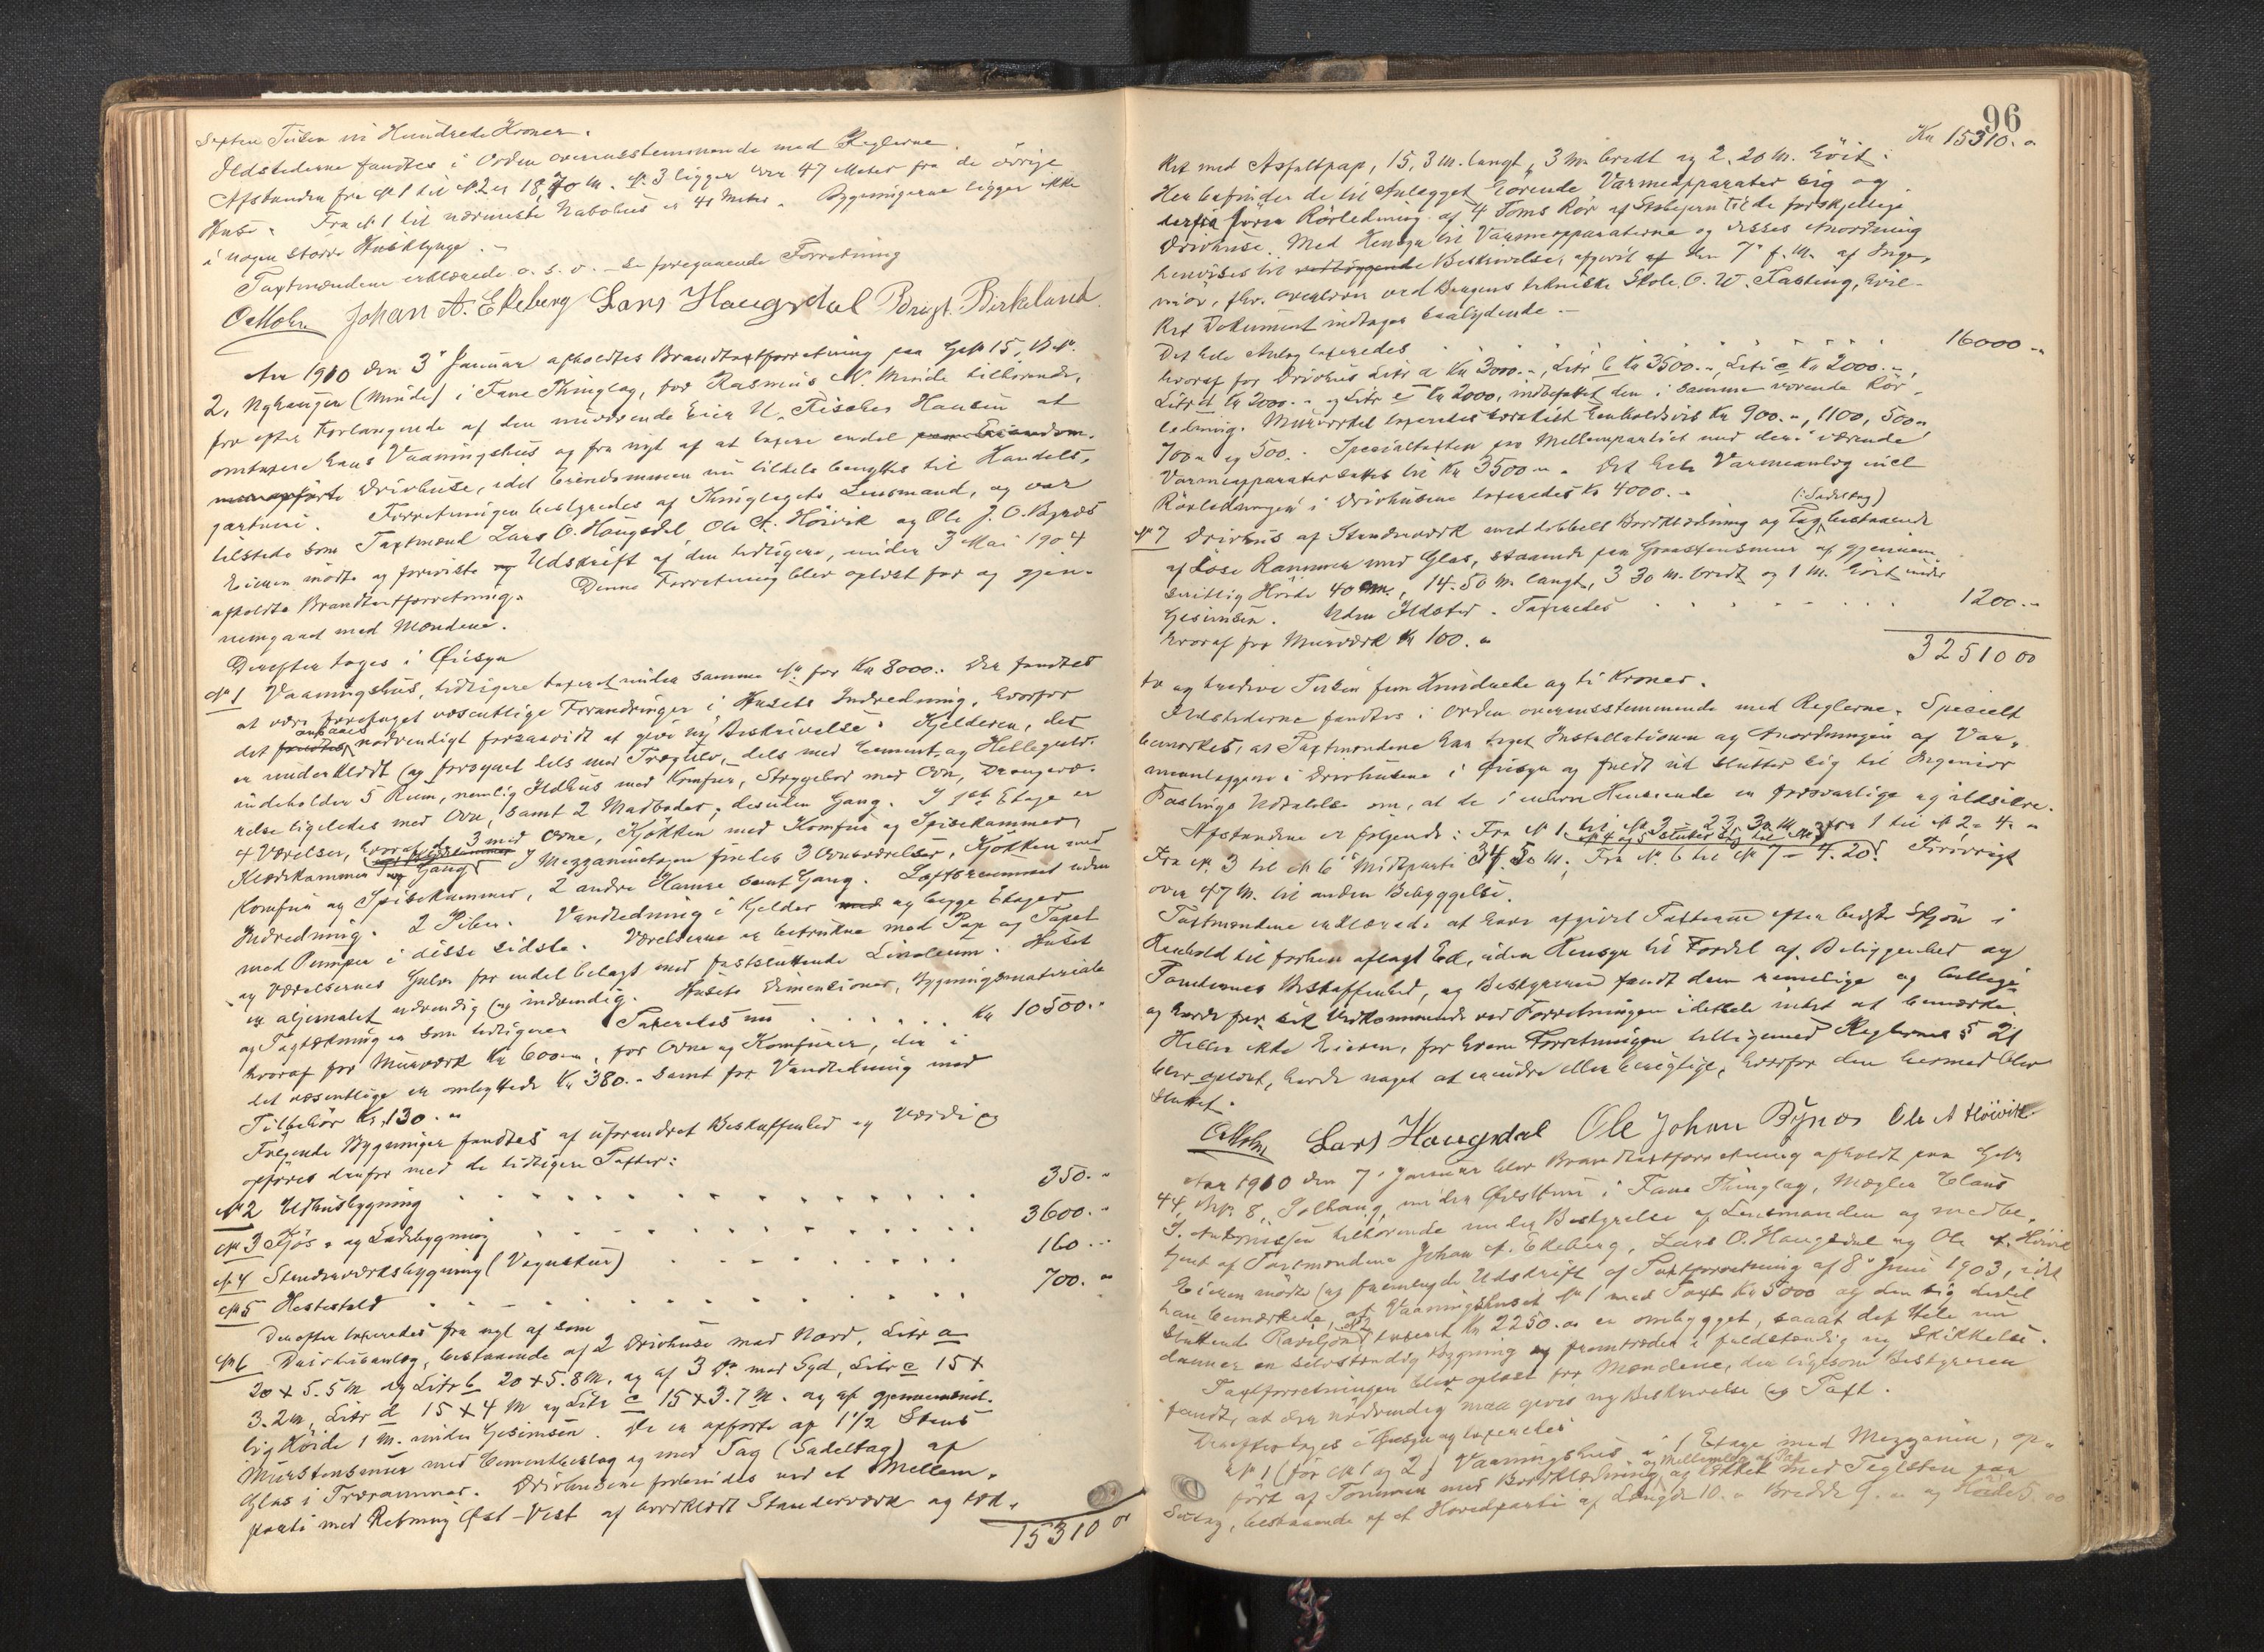 sexten Tusen ni Hundrede Kroner.
Ildstederne fandtes i Orden overensstemmende med Reglerne.
Afstanden fra № 1 til № 2 er 18,70 m. № 3 ligger over 47 Meter fra de övrige
Huse. Fra № 1 til nærmeste Nabohus er 41 Meter. Bygningerne ligger ikke
i nogen större Husklynge.
Taxtmændene erklærede o. s. v. – se foregaaende Forretning
OMohn Johan A. Ekeberg Lars Haugsdal Brigt. Birkeland
Aar 1910 den 3' Januar afholdtes Brandtaxtforretning paa G№ 15, B.№.
2, Nyhaugen (Minde) i Fane Thinglag, for Rasmus N. Minde tilhörende,
for efter Forlangende af den nuværende Eier N. Fischer Hansen at
omtaxere hans Vaaningshus og fra nyt af at taxere endel paa Eiendom-
men opförte Drivhuse, idet Eiendommen nu tildels benyttes til Handels-
gartneri. Forretningen bestyredes af Thinglagets Lensmand, og var
tilstede som Taxtmænd Lars O. Haugsdal Ole A. Höivik og Ole J. O. Bynæs
Eieren mödte og foreviste og Udskrift af den tidligere, under 3 Mai 1904
afholdte Brandtaxtforretning. Denne Forretning blev oplæst for og gjen-
nemgaaet med Mændene.
Derefter toges i Öiesyn
№ 1 Vaaningshus, tidligere taxeret under samme № for Kr 8000.. Der fandtes
at være foretaget væsentlige Forandringer i Husets Indredning, hvorfor
det fandtes ansaaes nödvendigt forsaavidt at give ny Beskrivelse. Kjelderen, der
er underklædt og forsynet dels med Trægulv, dels med Cement og Hellegulv.
indeholder 5 Rum, nemlig Ildhus med Komfur, Strygebod med Ovn, Drengevæ-
relse ligeledes med Ovn, samt 2 Madboder, desuden Gang. I 1ste Etage er
4 Værelser, hvoraf de 3 med Ovne, Kjökken med Komfur og Spisekammer,
Klædekammer og Gang. I Mezzaninetagen findes 3 Ovnsværelser, Kjökken med
Komfur og Spisekammer, 2 andre Kamre samt Gang. Loftsrummet uden
Indredning. 2 Piber. Vandledning i Kjelder med og begge Etager
med Pumpe i disse sidste. Værelserne er betrukne med Pap og Tapet
og Værelsernes Gulve for endel belagt med fastsluttende Linoleum. Huset
er oljemalet udvendig og indvendig. Husets Dimensioner, Bygningsmateriale
og Tagtækning er som tidligere. Taxeredes nu . . . . . . Kr 10500.-
hvoraf for Murværk Kr 600.-, for Ovne og Komfurer, der i
det væsentlige er ombyttede Kr 380.- samt for Vandledning med
Tilbehör Kr. 130.-
Fölgende Bygninger fandtes af uforandret Beskaffenhed og Værdi og
opföres derfor med de tidligere Taxter:
№ 2 Udhusbygning . . . . . . . . . . . . 350.-
№ 3 Fjös- og Ladebygning . . . . . . . . . . 3600.-
№ 4 Stenderværksbygning (Vognskur) . . . . . . . 160.-
№ 5 Hestestald . . . . . . . . . . . . 700.-
Derefter taxeredes fra nyt af som
№ 6 Drivhusanlæg, bestaaende af 2 Drivhuse mod Nord, Litr a
20 x 5.5 M og Litr b 20 x 5.8 M, og af 3 Do mod Syd, Litr c 15 x
3.2 m, Litr d 15 x 4 M og Litr e 15 x 3.7 M. og af gjennemsnit-
lig Höide 1 M. under Gesimsen. De er opförte af 1½ Stens
Murstensmur med Cementbeslag og med Tag (Sadeltag) af
Glas i Trærammer. Drivhusene forbindes ved et Mellem-
parti med Retning Öst-Vest af bordklædt Stenderværk og tæk-
15310 00
96
Kr 15310.-
ket med Asfaltpap, 15,3 M. langt, 3 M. bredt og 2.20 M. höit.
Her befinder de til Anlægget hörende Varmeapparater sig og
derfra förer Rörledning af 4 Toms Rör af Stöbejern til de forskjellige
Drivhuse. Med Hensyn til Varmeapparaterne og disses Anordning
henvises til vedliggende Beskrivelse, afgivet af den 7' f. M. af Inge-
niör, fhv. overlærer ved Bergens tekniske Skole. O. W. Fasting, hvil-
ket Dokument indtages saalydende.-
Det hele Anlæg taxeredes . . . . . . . . . 16000.-
hvoraf for Drivhus Litr a Kr 3000.-, Litr b Kr 3500.-, Litr c Kr 2000.-,
Litr d Kr 2000.- og Litr e Kr 2000, indbefattet den i samme værende Rör-
ledning. Murværket taxeredes særskilt henholdsvis Kr 900.-, 1100, 500.-,
700.- og 500.- Specialtaxten for Mellempartiet med deri værende
Varmeapparater sattes til Kr 3500.-. Det hele Varmeanlæg incl
Rörledningen i Drivhusene taxeredes Kr 4000.-
№ 7 Drivhus af Stenderværk med dobbelt Bordklædning og Tag (Sadeltag) bestaaende
af löse Rammer med Glas, staaende paa Graastensmur af gjennem-
snittlig Höide 40 cm., 14.50 M. langt, 3 30 M. bredt og 1 M. höit under
Gesimsen. Uden Ildsted. Taxeredes . . . . . . . 1200.-
hvoraf for Murværk Kr 100.-
32510 00
to og tredive Tusen fem Hundrede og ti Kroner.
Ildstederne fandtes i Orden overensstemmende med Reglerne. Specielt
bemærkes, at Taxtmændene har taget Installationen og Anordningen af Var-
meanlæggene i Drivhusene i Öiesyn og fuldt ud slutter sig til Ingeniör
Fastings Udtalelse om, at de i enhver Henseende er forsvarlige og ildsikre.
Afstandene er fölgende: Fra № 1 til № 3 – 23,30 M, fra 1 til № 2 – 4.-
№ 4 og 5 slutter sig til № 3
Fra № 3 til № 6 Midtparti 34.50 M. Fra № 6 til № 7 – 4.20. Forövrigt
over 47 M. til anden Bebyggelse.
Taxtmændene erklærede at have afgivet Taxterne efter bedste Skjön i
Henhold til forhen aflagt Ed, uden Hensyn til Fordel af Beliggenhed og
Tomternes Beskaffenhed, og Bestyreren fandt dem rimelige og billige
og havde for sit Vedkommende ved Forretningen idethele intet at bemærke.
Heller ikke Eieren, for hvem Forretningen tilligemed Reglernes § 21
blev oplæst, havde noget at erindre eller berigtige, hvorfor den hermed blev
sluttet.
OMohn Lars Haugsdal Ole Johan Bynæs Ole A Höivik
Aar 1910 den 7. Januar blev Brandtaxtforretning afholdt paa G№
44, B№. 8, Solhaug, under Övsttun i Fane Thinglag, Mægler Claus
T. Antonissen tilhörende under Bestyrelse af Lensmanden og medbe-
tjent af Taxtmændene Johan A. Ekeberg, Lars O. Haugsdal og Ole A. Höivik
Eieren mödte og fremlagde Udskrift af Taxtforretning af 8' Juni 1903, idet
han bemærkede, at Vaaningshuset № 1 med Taxt Kr 5000 og den sig dertil
sluttende Pavillon № 2 taxeret Kr 2250.- er ombygget, saaat det Hele nu
danner en selvstændig Bygning og fremtræder i fuldstændig ny Skikkelse.
Taxtforretningen blev oplæst for Mændene, der ligesom Bestyreren
fandt, at der nödvendig maa gives ny Beskrivelse og Taxt.
Derefter toges i Öiesyn og taxeredes
№ 1 (för № 1 og 2) Vaaningshus i 1 Etage med Mezzanin, op-
fört af Tömmer med Bordklædning og Mellemlæg af Pap og tækket med Teglsten paa
Sutag, bestaaende af et Hovedparti af Længde 10.- Bredde 9.- og Höide 5.00